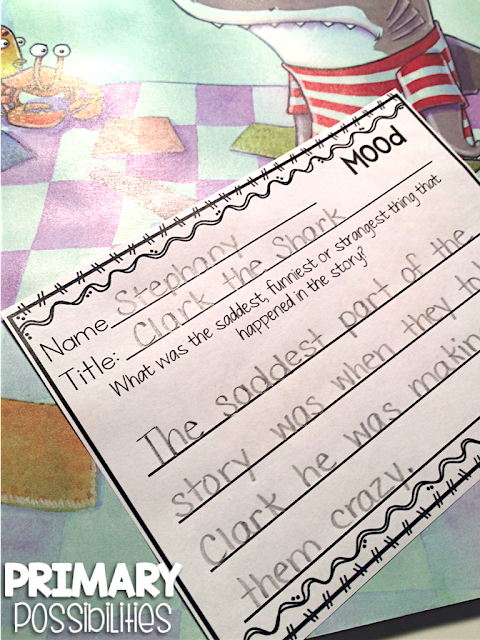 Mood
Name Stephany
Title: Clark the Shark
What was the saddest, funniest or strangest thing that
happened in the story?
The saddest part of the
story was when they
Clark he was
them crazy.
PRIMARY
POSSIBILITIES